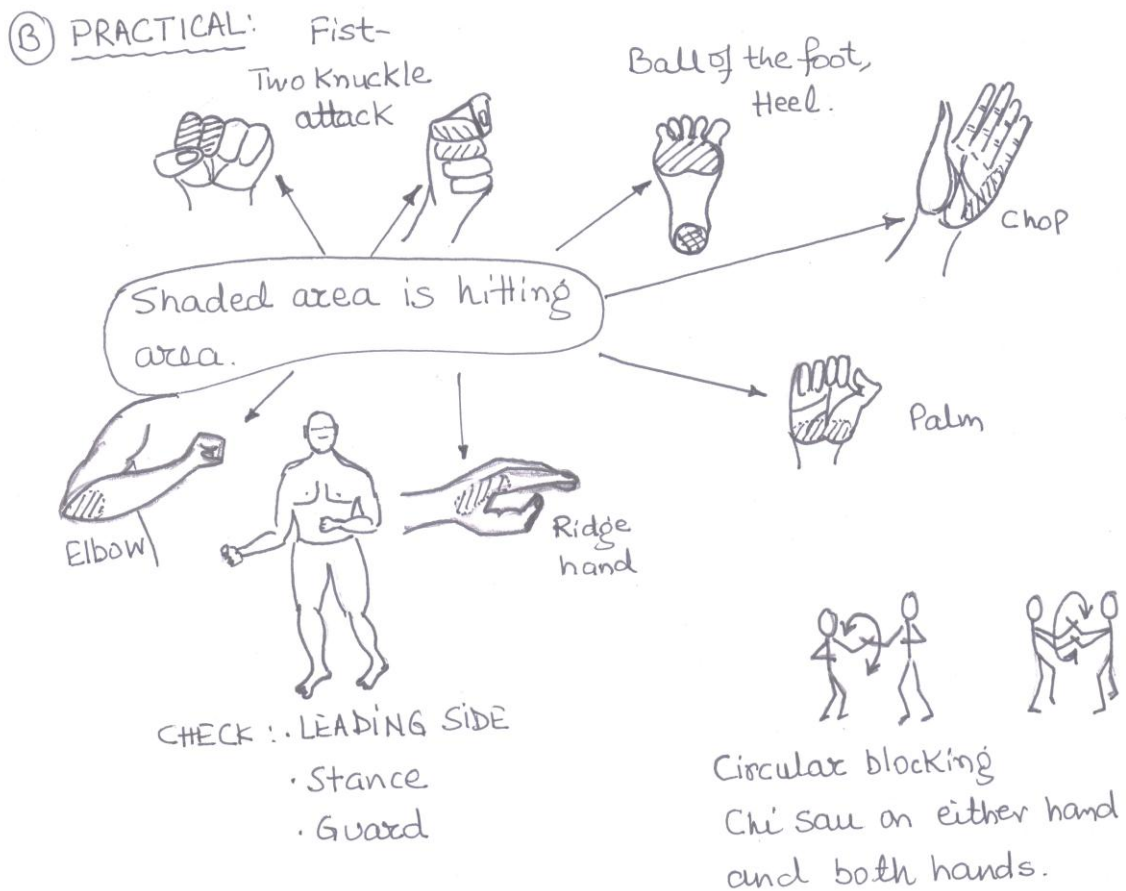 B PRACTICAL:
Fist-
Two Knuckle
attack
Ball of the foot,
Heel.
Chop
Shaded area is hitting
area.
Palm
Elbow
Ridge
hand
CHECK :. LEADING SIDE
· Stance
· Guard
Circular blocking
Chi sau on either hand
and both hands.